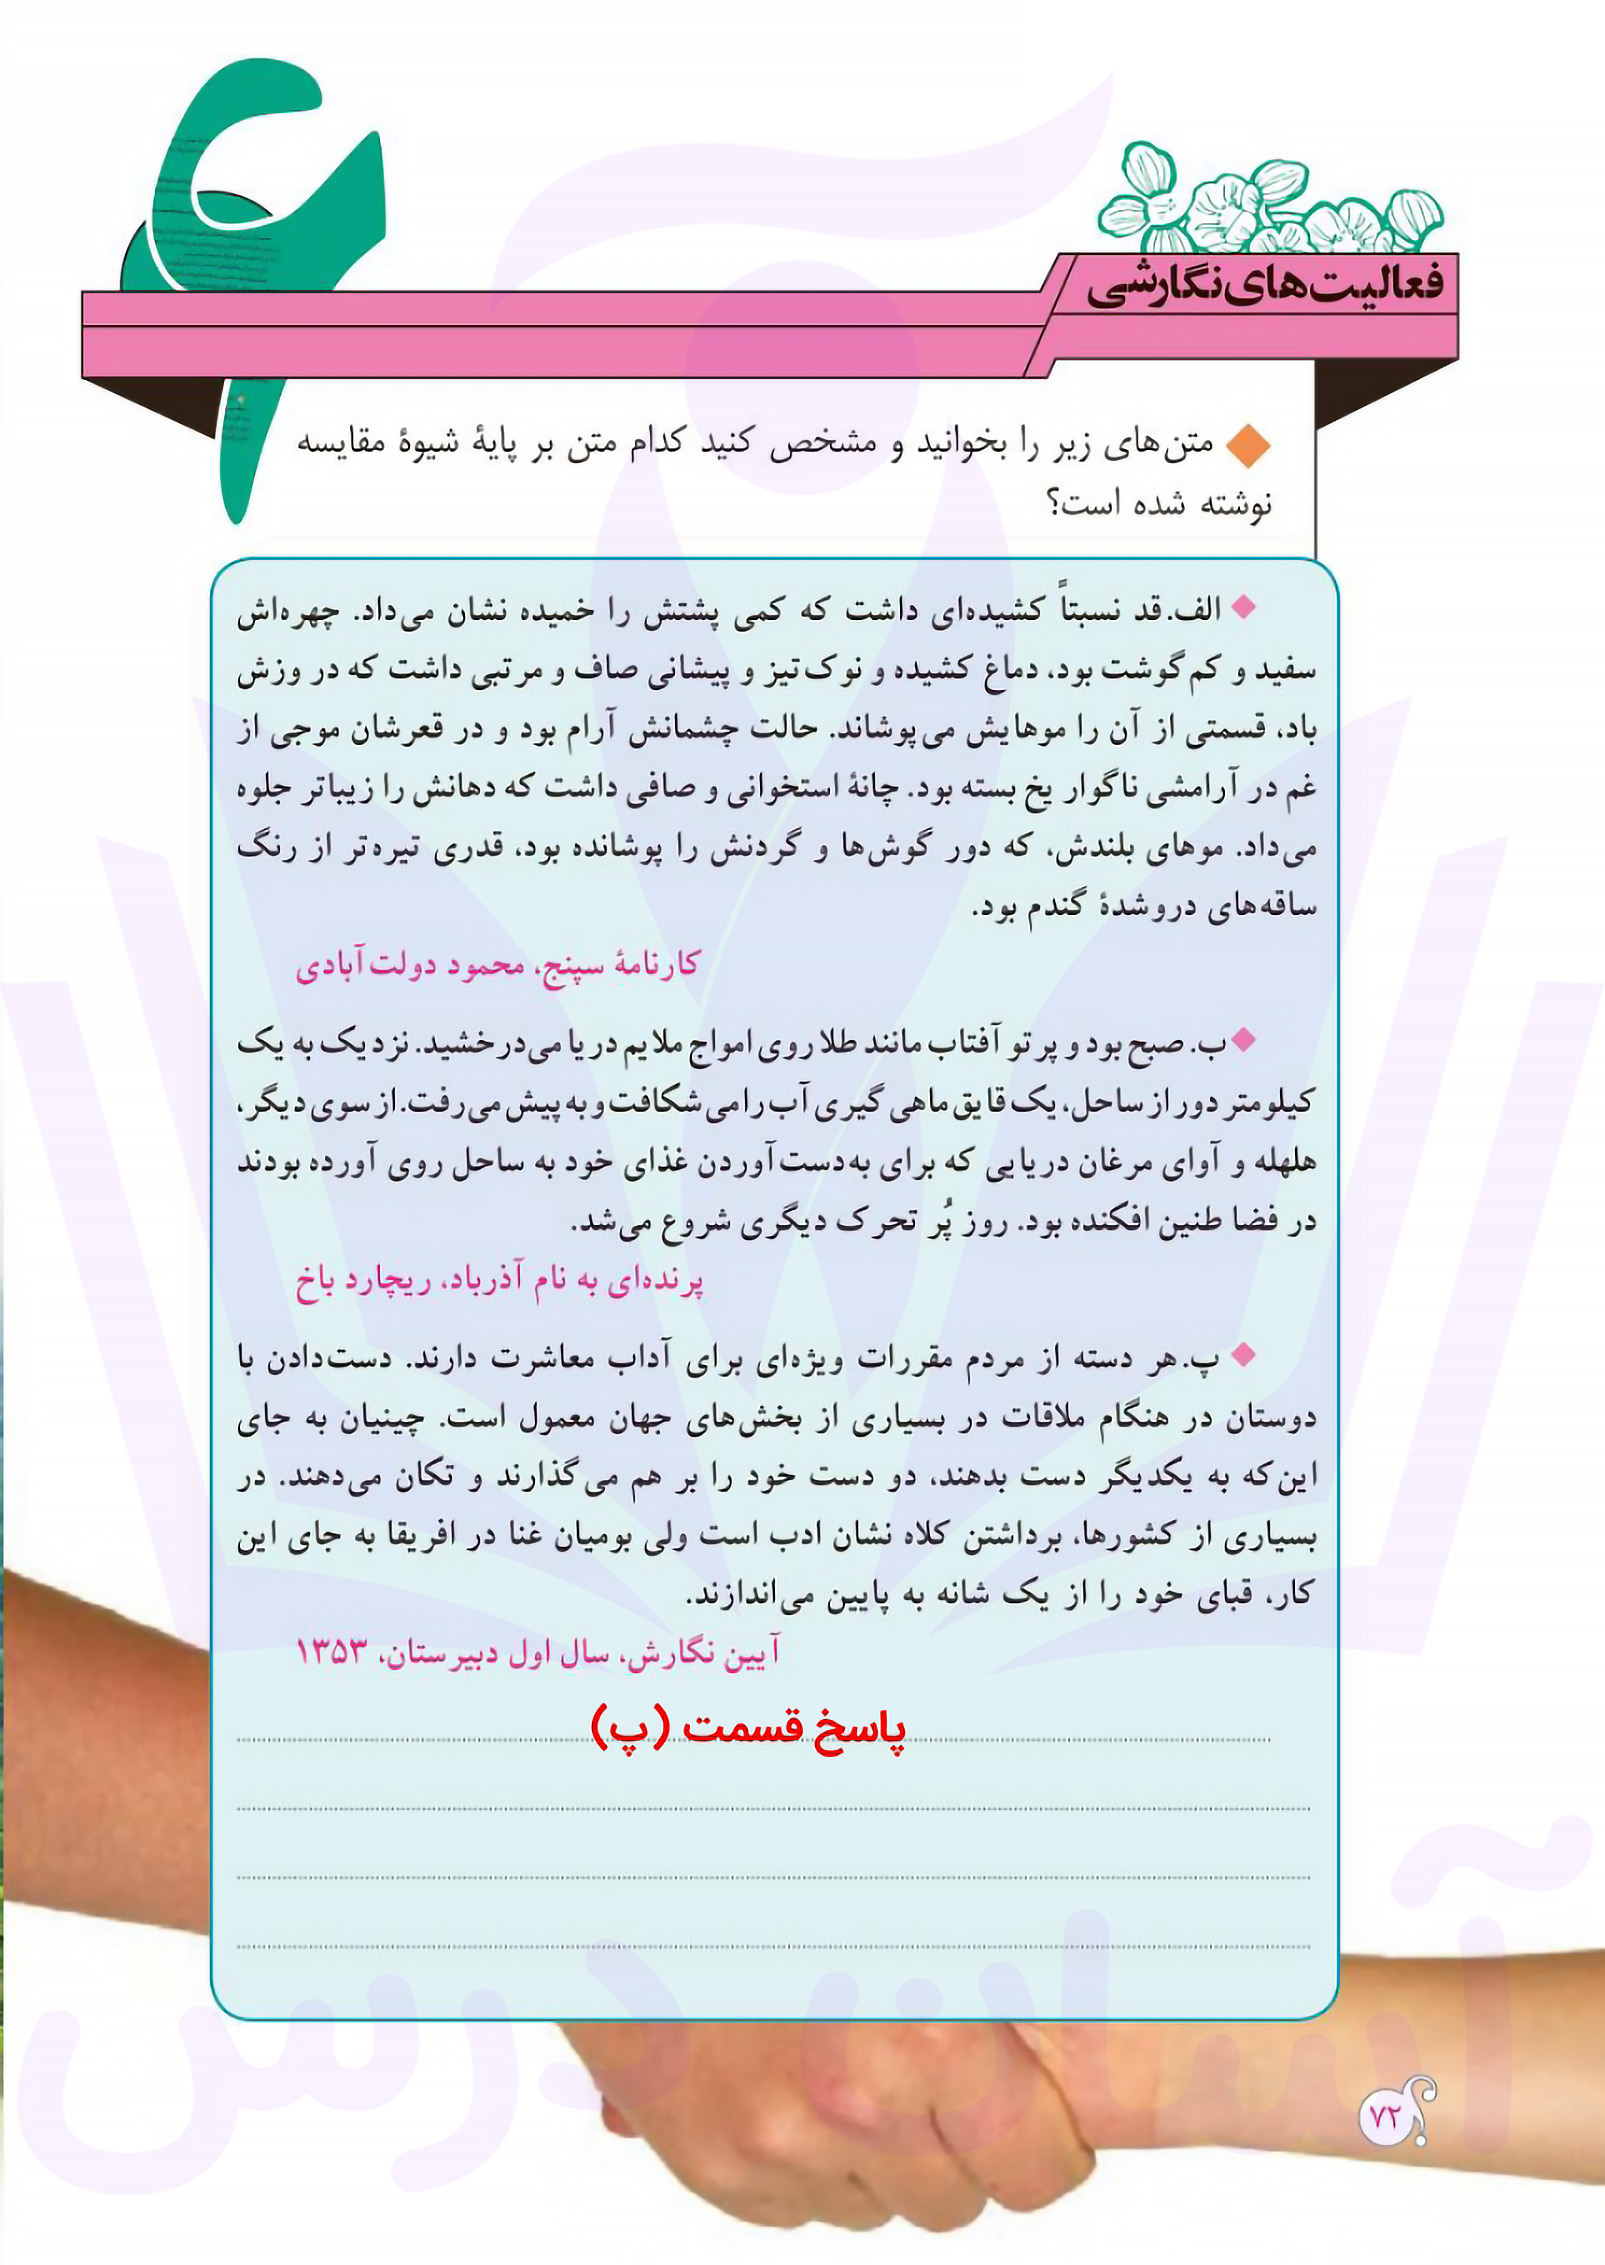 فعالیت‌های نگارشی
متن‌های زیر را بخوانید و مشخص کنید کدام متن بر پایهٔ شیوهٔ مقایسه
نوشته شده است؟
الف. قد نسبتاً کشیده‌ای داشت که کمی پشتش را خمیده نشان می‌داد. چهره‌اش
سفید و کم‌گوشت بود، دماغ کشیده و نوک‌تیز و پیشانی صاف و مرتبی داشت که در وزش
باد، قسمتی از آن را موهایش می‌پوشاند. حالت چشمانش آرام بود و در قعرشان موجی از
غم در آرامشی ناگوار یخ بسته بود. چانهٔ استخوانی و صافی داشت که دهانش را زیباتر جلوه
می‌داد. موهای بلندش، که دور گوش‌ها و گردنش را پوشانده بود، قدری تیره‌تر از رنگ
ساقه‌های دروشدهٔ گندم بود.
کارنامهٔ سپنج، محمود دولت‌آبادی
ب. صبح بود و پرتو آفتاب مانند طلا روی امواج ملایم دریا می‌درخشید. نزدیک به یک
کیلومتر دور از ساحل، یک قایق ماهی‌گیری آب را می‌شکافت و به پیش می‌رفت. از سوی دیگر،
هلهله و آوای مرغان دریایی که برای به‌دست‌آوردن غذای خود به ساحل روی آورده بودند
در فضا طنین افکنده بود. روز پُر تحرک دیگری شروع می‌شد.
پرنده‌ای به نام آذرباد، ریچارد باخ
پ. هر دسته از مردم مقررات ویژه‌ای برای آداب معاشرت دارند. دست‌دادن با
دوستان در هنگام ملاقات در بسیاری از بخش‌های جهان معمول است. چینیان به جای
این‌که به یکدیگر دست بدهند، دو دست خود را بر هم می‌گذارند و تکان می‌دهند. در
بسیاری از کشورها، برداشتن کلاه نشان ادب است ولی بومیان غنا در افریقا به جای این
کار، قبای خود را از یک شانه به پایین می‌اندازند.
آیین نگارش، سال اول دبیرستان، ۱۳۵۳
پاسخ قسمت (پ)
آسان درس
۷۲